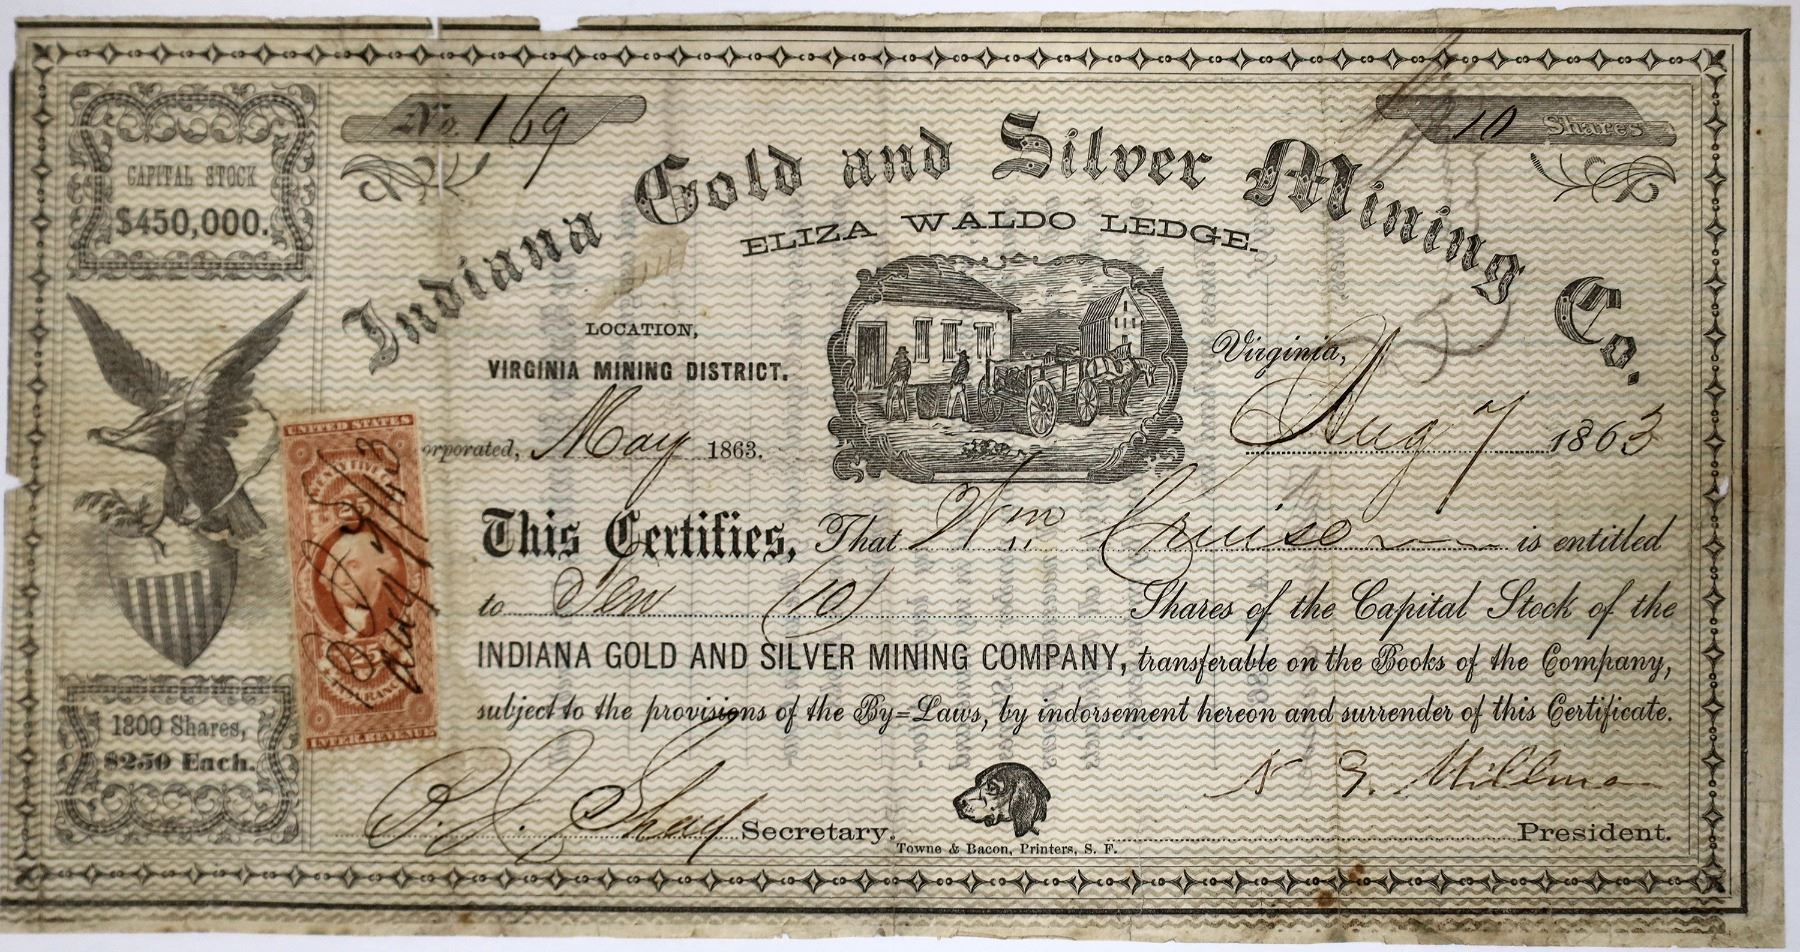 No. 169
10 Shares
CAPITAL STOCK
$450,000.
Indiana Gold and Silver Mining Co.
ELIZA WALDO LEDGE.
LOCATION,
VIRGINIA MINING DISTRICT.
Virginia,
Aug 7 1863
orporated, May 1863.
UNITED STATES
25
INSURANCE
25
INTER. REVENUE
Aug 7/63
This Certifies, That Wm Cruise is entitled
to Ten (10) Shares of the Capital Stock of the
INDIANA GOLD AND SILVER MINING COMPANY, transferable on the Books of the Company,
subject to the provisions of the By=Laws, by indorsement hereon and surrender of this Certificate.
1800 Shares,
$250 Each.
Shay Secretary.
President.
Towne & Bacon, Printers, S. F.